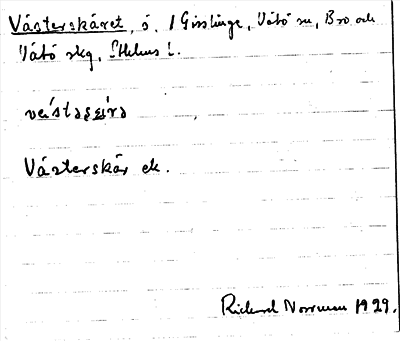 Västerskäret, ö, / Gisslinge, Vätö sn, Bro och
Vätö skg, Sthlms l.
Västerskär ek.
Rickard Norrman 1929.